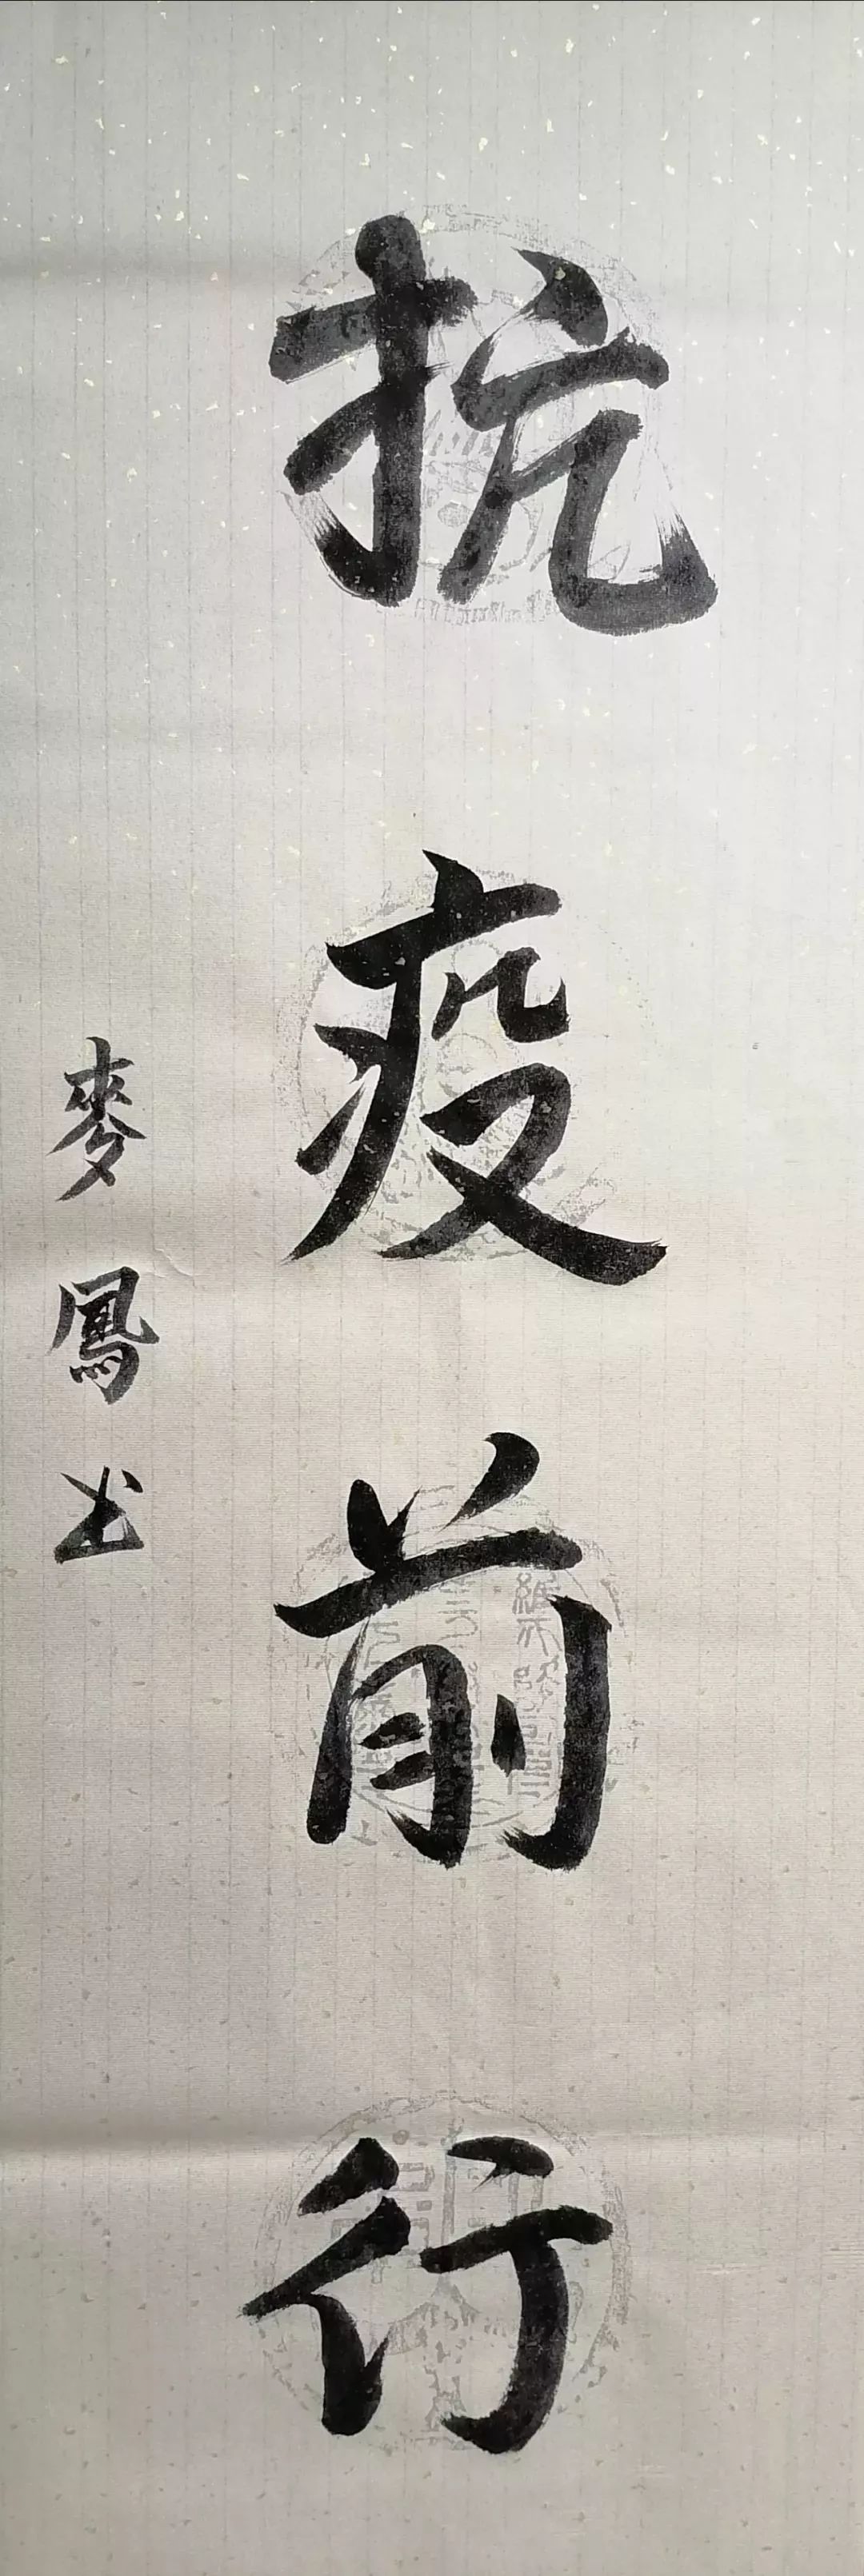 抗疫前行
麥鳳书